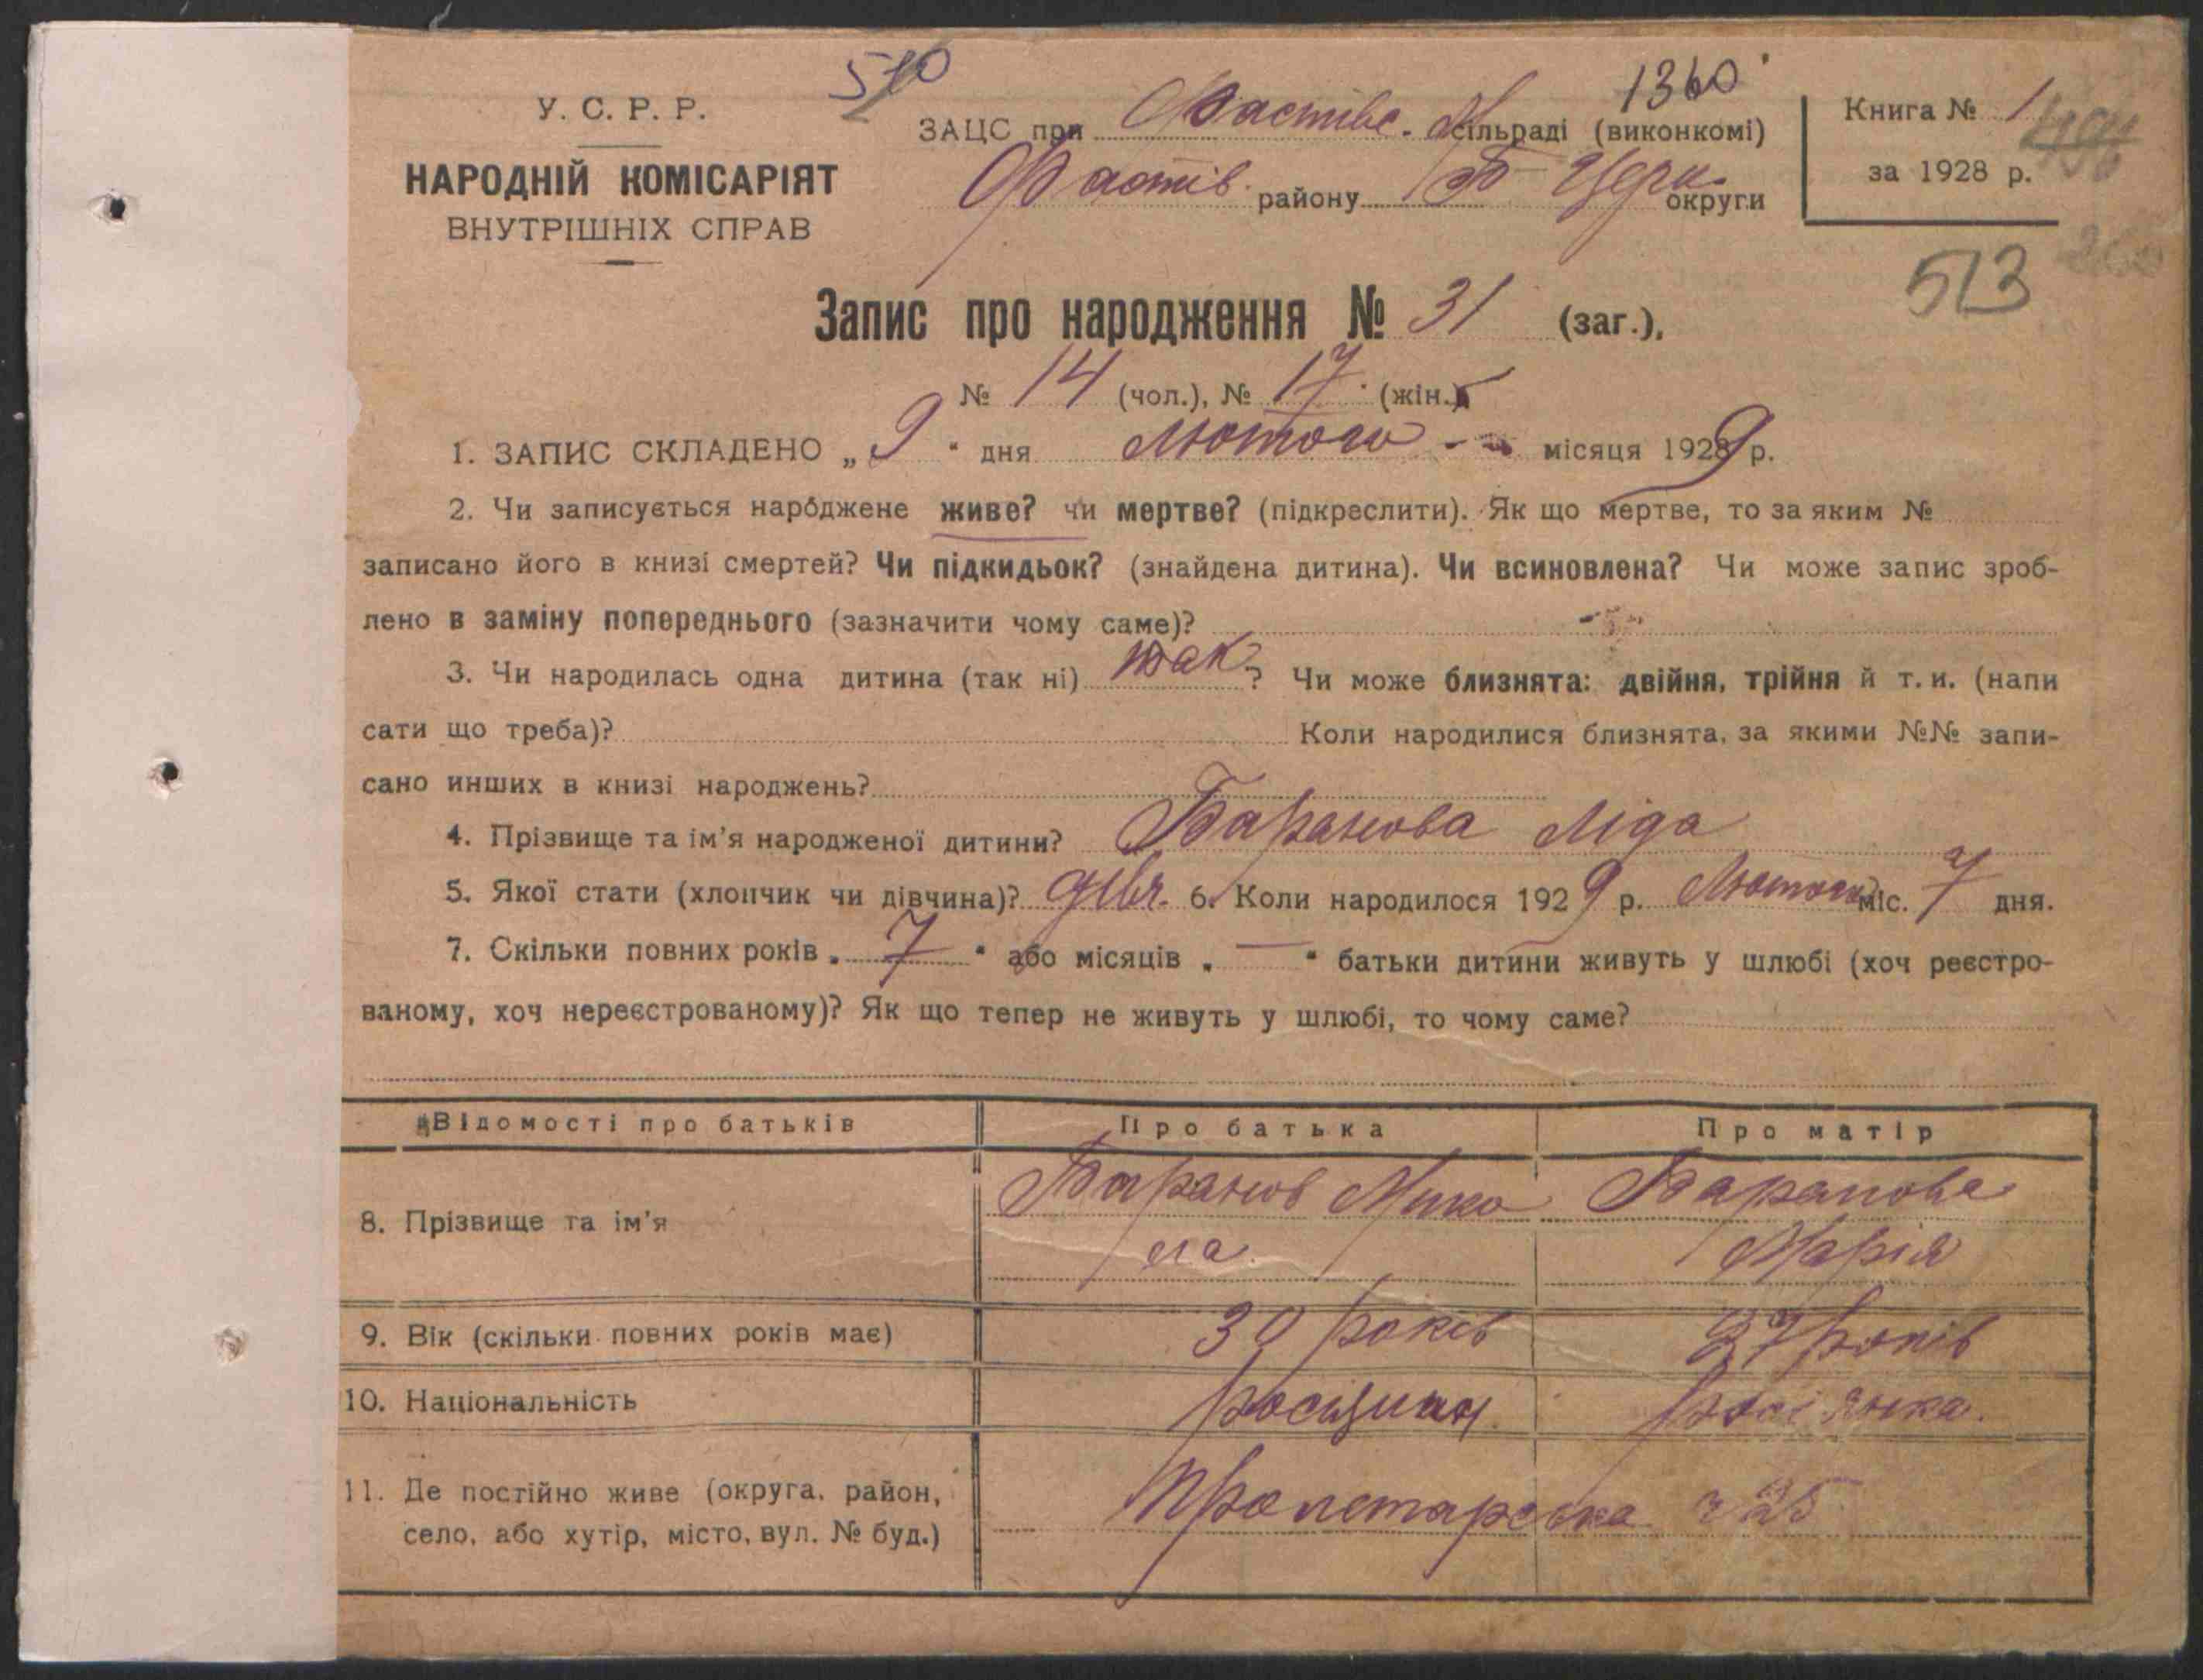 510
1360
У. С. Р. Р.
ЗАЦС при Фастівс. М сільраді (виконкомі)
Книга № 1
НАРОДНІЙ КОМІСАРІЯТ
Фастів. району Б Церк. округи
за 1928 р.
ВНУТРІШНІХ СПРАВ
513
Запис про народження № 31 (заг.),
№ 14 (чол.), № 17 (жін.)
1. ЗАПИС СКЛАДЕНО „ 9 “ дня Лютого місяця 1929 р.
2. Чи записується народжене живе? чи мертве? (підкреслити). Як що мертве, то за яким №
записано його в книзі смертей? Чи підкидьок? (знайдена дитина). Чи всиновлена? Чи може запис зроб-
лено в заміну попереднього (зазначити чому саме)?
3. Чи народилась одна дитина (так ні) так ? Чи може близнята: двійня, трійня й т. и. (напи
сати що треба)? Коли народилися близнята, за якими №№ запи-
сано инших в книзі народжень?
4. Прізвище та ім'я народженої дитини? Баранова Ліда
5. Якої стати (хлопчик чи дівчина)? дівч. 6. Коли народилося 1929 р. Лютого міс. 7 дня.
7. Скільки повних років „ 7 “ або місяців „ — “ батьки дитини живуть у шлюбі (хоч реєстро-
ваному, хоч нереєстрованому)? Як що тепер не живуть у шлюбі, то чому саме?
Відомості про батьків Про батька Про матір
8. Прізвище та ім'я Баранов Мико Баранова
ла. Марія
9. Вік (скільки повних років має) 30 років 27 років
10. Національність росіянин росіянка.
11. Де постійно живе (округа, район,
село, або хутір, місто, вул. № буд.) Пролетарська ч 25